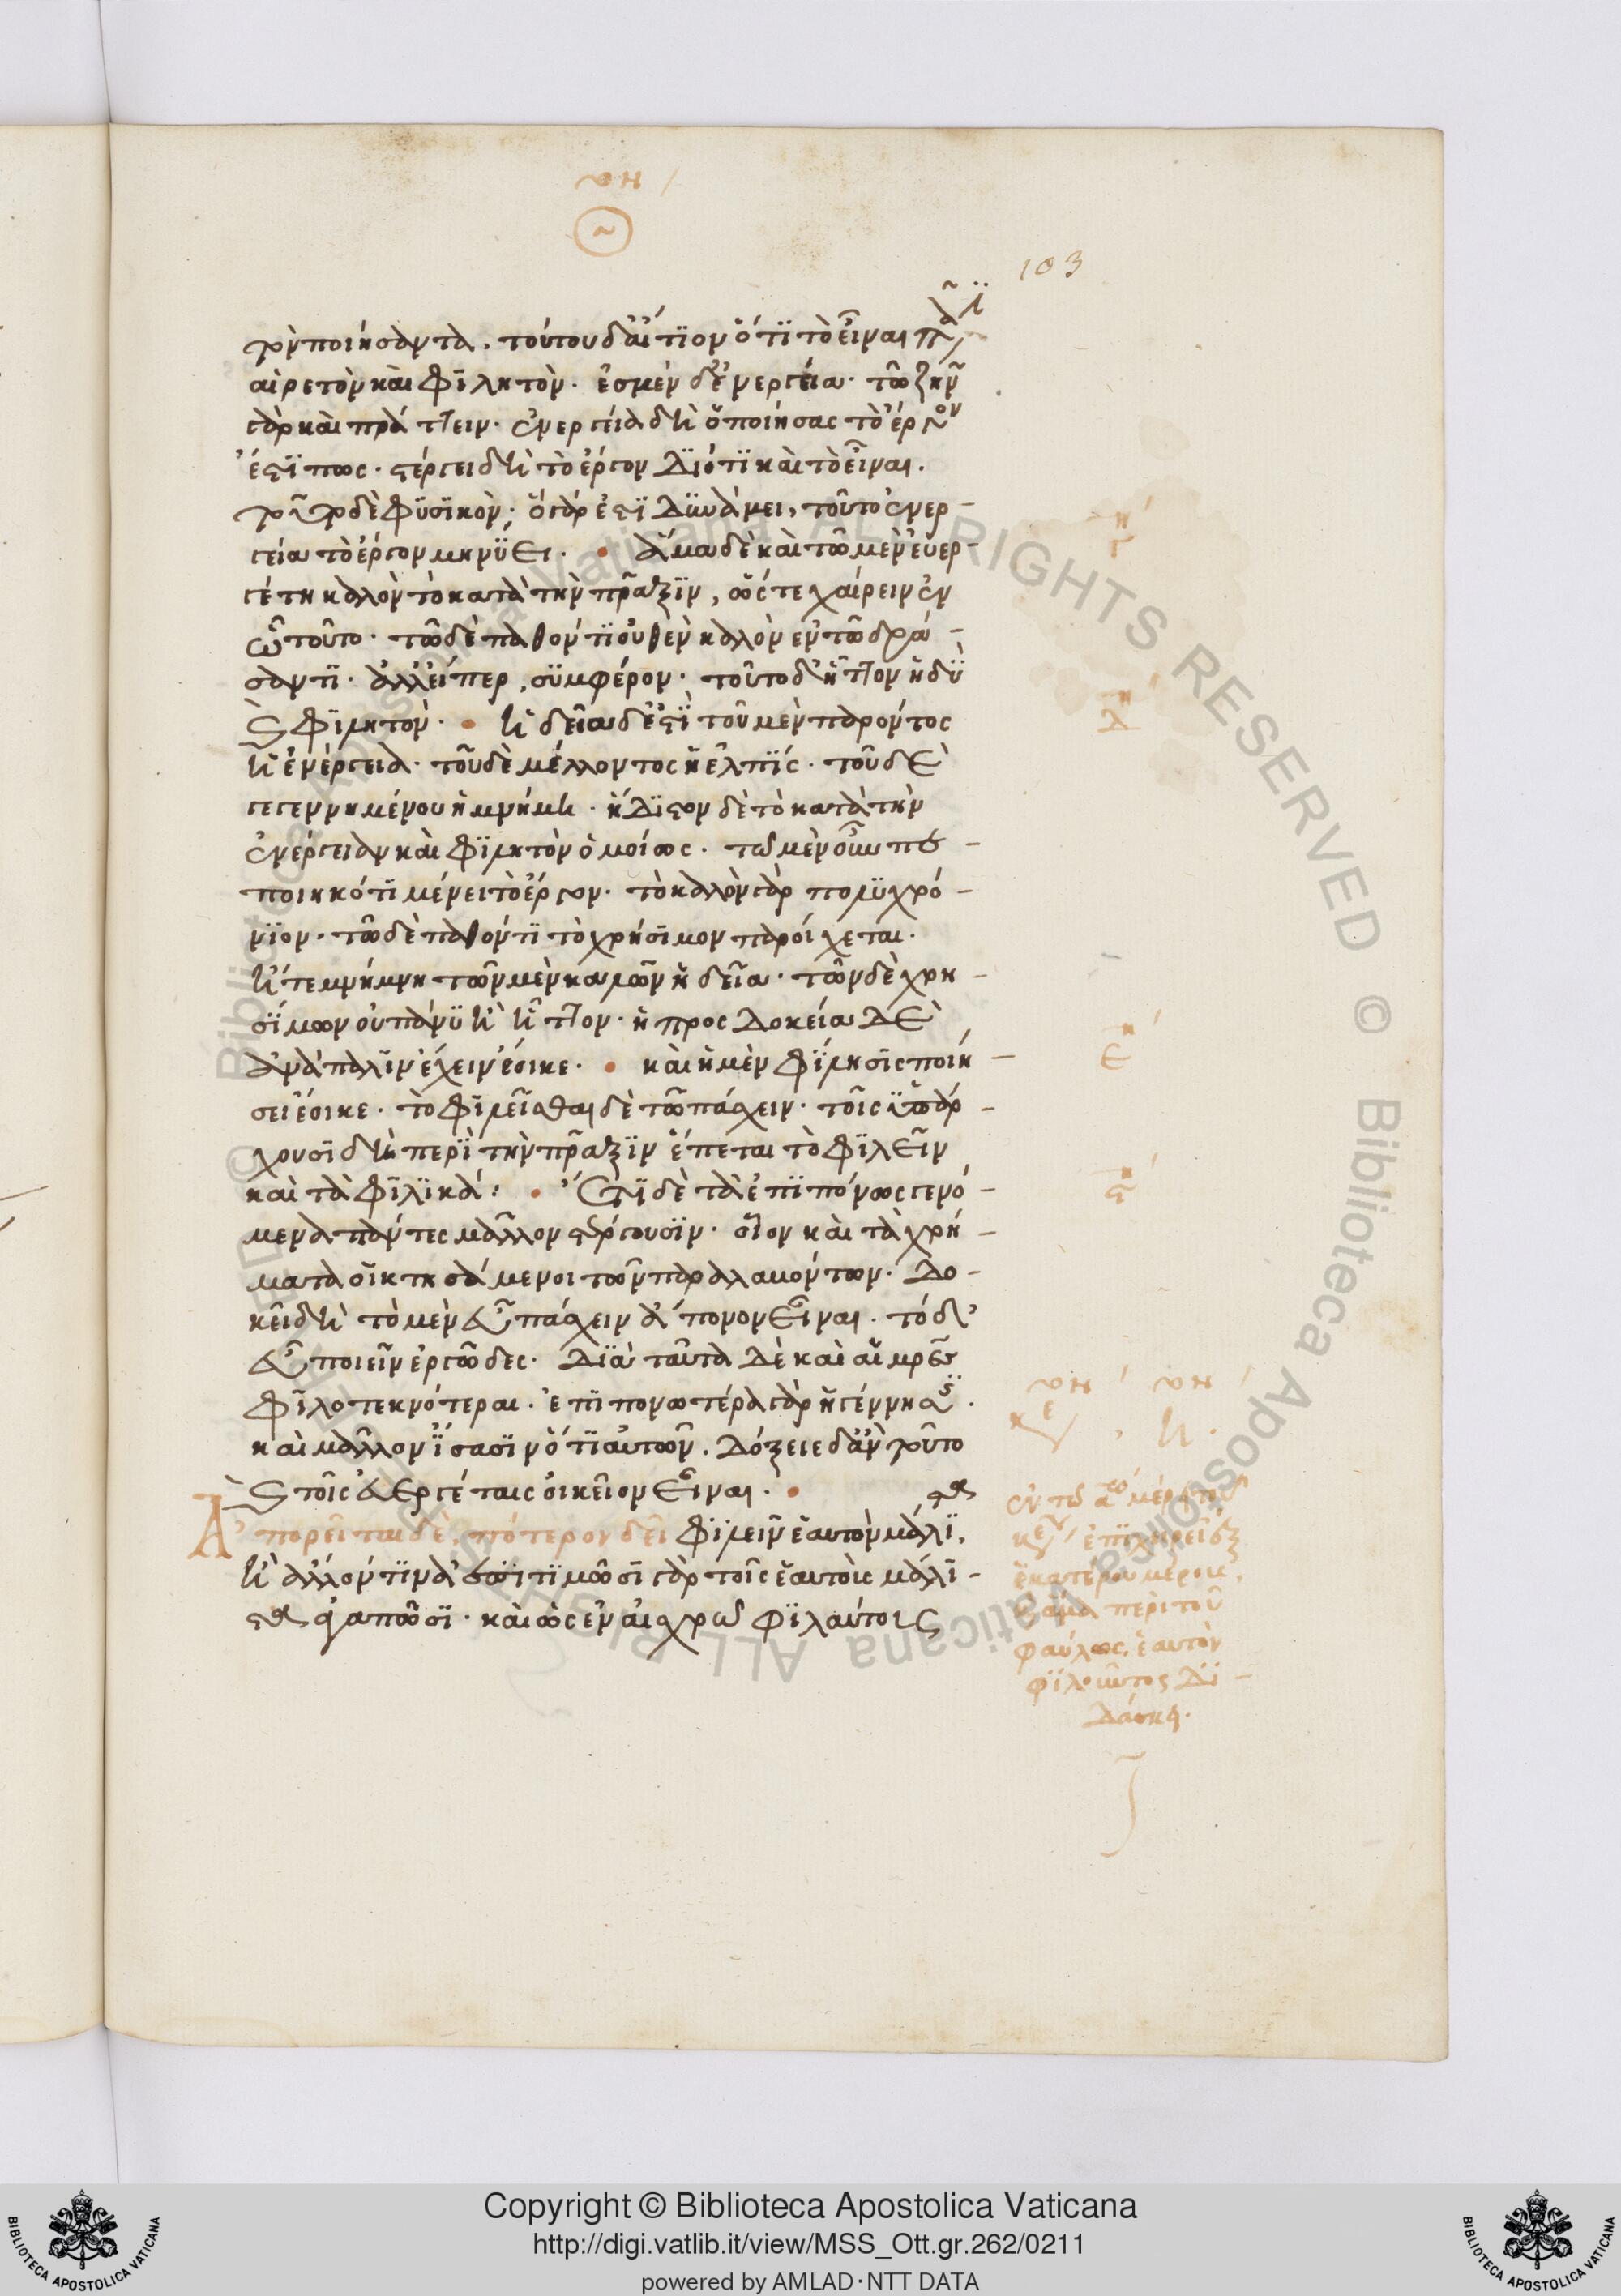 103
τὸν ποιήσαντα. τούτου δ' αἴτιον ὅτι τὸ εἶναι πᾶσιν
αἱρετὸν καὶ φιλητὸν. ἐσμὲν δ' ἐνεργεία. τῶ ζῆν
γὰρ καὶ πράττειν. ἐνεργεία δὴ ὁ ποιήσας τὸ ἔργον
ἔστι πως. στέργει δὴ τὸ ἔργον διότι καὶ τὸ εἶναι.
τοῦτο δὲ φυσικὸν. ὃ γάρ ἐστι δυνάμει, τοῦτο ἐνερ-
γεία τὸ ἔργον μηνύει. ἅμα δὲ καὶ τῶ μὲν εὐερ-
γέτη καλὸν τὸ κατὰ τὴν πρᾶξιν, ὥστε χαίρειν ἐν
ὧ τοῦτο. τῶ δὲ παθόντι οὐθὲν καλὸν ἐν τῶ δρά-
σαντι. ἀλλ' εἴπερ, συμφέρον. τοῦτο δ' ἧττον ἡδὺ
καὶ φιλητὸν. ἡδεῖα δ' ἐστὶ τοῦ μὲν παρόντος
ἡ ἐνέργεια. τοῦ δὲ μέλλοντος ἡ ἐλπίς. τοῦ δὲ
γεγεννημένου ἡ μνήμη. ἥδιστον δὲ τὸ κατὰ τὴν
ἐνέργειαν καὶ φιλητὸν ὁμοίως. τῶ μὲν οὖν πε-
ποιηκότι μένει τὸ ἔργον. τὸ καλὸν γὰρ πολυχρό-
νιον. τῶ δὲ παθόντι τὸ χρήσιμον παροίχεται.
ἥ τε μνήμη τῶν μὲν καλῶν ἡδεῖα. τῶν δὲ χρη-
σίμων οὐ πάνυ ἢ ἧττον. ἡ προσδοκεία δὲ
ἀνάπαλιν ἔχειν ἔοικε. καὶ ἡ μὲν φίλησις ποιή-
σει ἔοικε. τὸ φιλεῖσθαι δὲ τῶ πάσχειν. τοῖς ὑπερέ-
χουσι δὴ περὶ τὴν πρᾶξιν ἕπεται τὸ φιλεῖν
καὶ τὰ φιλικά: Ἔτι δὲ τὰ ἐπιπόνως γενό-
μενα πάντες μᾶλλον στέργουσιν. οἷον καὶ τὰ χρή-
ματα οἱ κτησάμενοι τῶν παραλαμόντων. δο-
κεῖ δὴ τὸ μὲν εὖ πάσχειν ἄπονον εἶναι. τὸ δ'
εὖ ποιεῖν ἐργῶδες. διὰ ταῦτα δὲ καὶ αἱ μρες
φιλοτεκνότεραι. ἐπιπονωτέρα γὰρ ἡ γέννησις.
καὶ μᾶλλον ἴσασιν ὅτι αὐτῶν. δόξειε δ' ἂν τοῦτο
καὶ τοῖς εὐεργέταις οἰκεῖον εἶναι.
Ἀπορεῖται δὲ, πότερον δεῖ φιλεῖν ἑαυτὸν μάλιστα,
ἢ ἄλλον τινά. ἐπιτιμῶσι γὰρ τοῖς ἑαυτοὺς μάλι-
στα ἀγαπῶσι. καὶ ὡς ἐν αἰσχρῶ φιλαύτους
η
γ
η
δ
η
ε
η
ς
ἐν τῶ
ἐπιχειρεῖ
ἑκατέρου μέρους,
ἅμα περὶ τοῦ
φαύλως ἑαυτὸν
φιλοῦντος δι-
δάσκει.
Copyright © Biblioteca Apostolica Vaticana
http://digi.vatlib.it/view/MSS_Ott.gr.262/0211
powered by AMLAD·NTT DATA